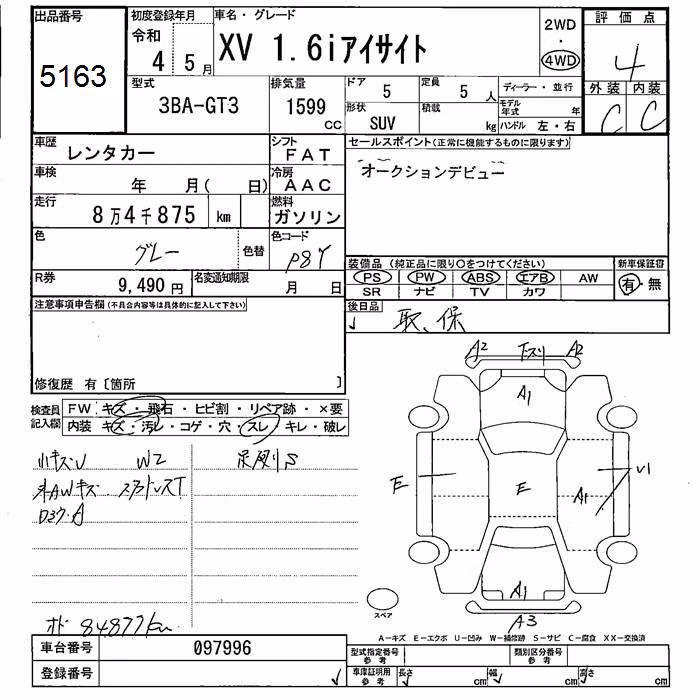 出品番号
5163
初度登録年月
令和
4 5月
車名・グレード
XV 1.6iアイサイト
2WD
・
4WD
評価点
4
外装 内装
C C
型式
3BA-GT3
排気量
1599
CC
ドア
5
定員
5人
形状
SUV
積載
kg
ディーラー・並行
モデル年式
年
ハンドル 左・右
車歴
レンタカー
シフト
FAT
車検
年 月( 日)
冷房
AAC
走行
8万4千875 km
燃料
ガソリン
色
グレー
色替
色コード
P8Y
R券
9,490円
名変通知期限
月 日
セールスポイント(正常に機能するものに限ります)
オークションデビュー
装備品(純正品に限り○をつけてください)
PS PW ABS エアB AW
SR ナビ TV カワ
新車保証書
有・無
後日品
取、保
注意事項申告欄(不具合内容等は具体的に記入して下さい)
修復歴 有〔箇所 〕
検査員
記入欄
FW キズ・飛石・ヒビ割・リペア跡・×要
内装 キズ・汚レ・コゲ・穴・スレ・キレ・破レ
小キズU W2
AWキズ
オド 84877km
A2 下スリ A2
A1
E
E
A1
U1
A1
A3
スペア
A-キズ E-エクボ U-凹み W-補修跡 S-サビ C-腐食 XX-交換済
車台番号
097996
登録番号
型式指定番号
参考
類別区分番号
参考
車庫証明用
参考
長さ cm 幅 cm 高さ cm